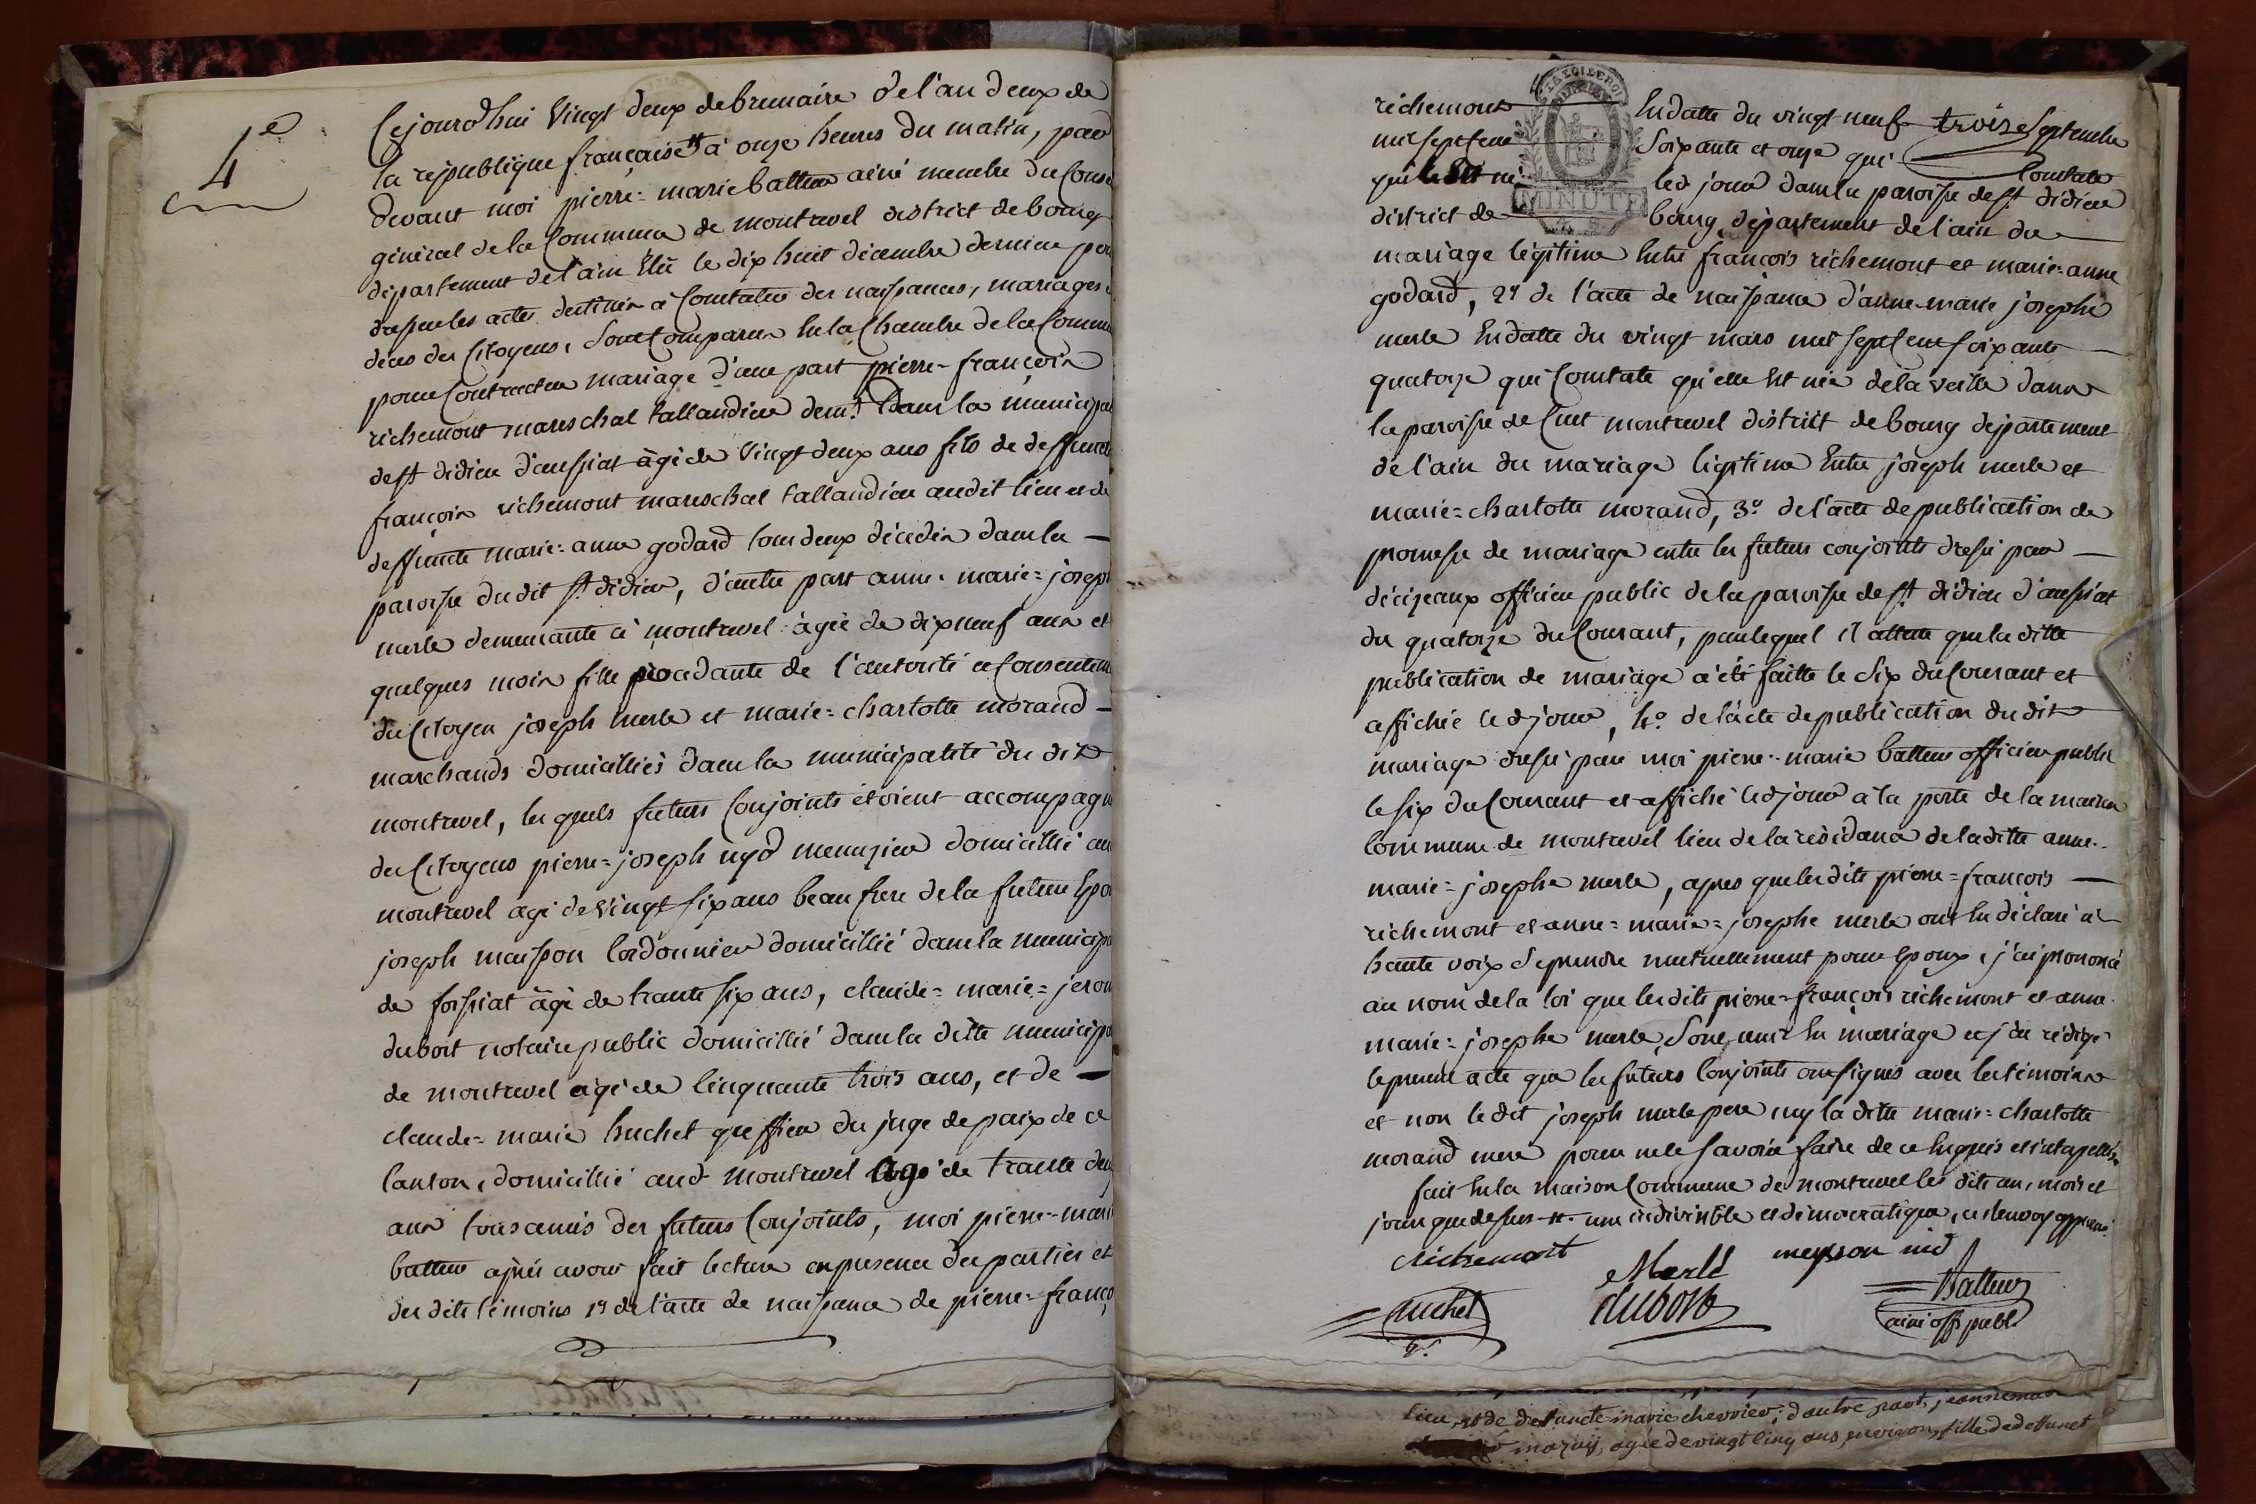 4e
Cejourdhui vingt deux de brumaire de l'an deux de
la république française à onze heures du matin, par
devant moi pierre=marie batteur ainé membre du Conse
général de la Commune de montrevel district de bourg
département de l'ain élû le dix huit décembre dernier pou
dresser les actes destinés à Constater des naissances, mariages
décès des Citoyens, sont Comparus en la Chambre de la Commu
pour Contracter mariage d'une part pierre-françois
richemont mareschal tallandier demt. dans la municipal
de st didier d'aussiat âgé de vingt deux ans fils de deffunct
françois richemont mareschal tallandier audit lieu et de
deffuncte marie=anne godard tous deux décédés dans la
paroisse du dit st. didier, d'autre part anne-marie=joseph
merle demeurante à montrevel âgée de dix neuf ans et
quelques mois fille procedante de l'autorité et Consenteme
du Citoyen joseph merle et marie=charlotte morand
marchands domicilliés dans la municipalité du dit
montrevel, les quels futurs Conjoints étoient accompagn
des Citoyens pierre=joseph nyd menuzier domicillié au
montrevel agé de vingt six ans beau frere de la future Epo
joseph maisson Cordonnier domicillié dans la municipa
de foissiat âgé de trante six ans, claude=marie=jerom
dubost notaire public domicillié dans la ditte municipa
de montrevel agé de Cinquante trois ans, et de
claude=marie huchet greffier du juge de paix de ce
Canton, domicillié aud. montrevel agé de trante deu
ans tous amis des futurs Conjoints, moi pierre-mari
batteur après avoir fait lecture en presence des parties et
des dits témoins 1º de l'acte de naissance de pierre-franço
richemont En datte du vingt neuf trois Septembre
mil sept cent Soixante et onze qui Constate
qu'il est né led. jour dans la paroisse de st. didier
MINUTE
district de bourg, département de l'ain du
mariage légitime Entre françois richemont et marie=anne
godard, 2º de l'acte de naissance d'anne-marie josephe
merle En datte du vingt mars mil sept Cent soixante
quatorze qui Constate qu'elle Est née de la veille dans
la paroisse de Cuet montrevel district de bourg département
de l'ain du mariage légitime Entre joseph merle et
marie=charlotte morand, 3º de l'acte de publication de
promesse de mariage entre les futurs conjoints dressé par
décizeaux officier public de la paroisse de st. didier d'aussiat
du quatorze du Courant, par lequel il atteste que la ditte
publication de mariage a été faitte le Six du Courant et
affichée led. jour, 4º de l'acte de publication du dit
mariage dressé par moi pierre-marie batteur officier public
le six du Courant et affiché led. jour à la porte de la maison
Commune de montrevel lieu de la résidance de la ditte anne-
marie=josephe merle, apres que lesdits pierre=françois
richemont et anne=marie=josephe merle ont Eu déclaré à
haute voix Se prendre mutuellement pour Epoux, j'ai prononcé
au nom de la loi que lesdits pierre-françois richemont et anne-
marie=josephe merle, Sont unis En mariage et j'ai rédigé
le present acte que les futurs Conjoints ont signés avec les témoins
et non le dit joseph merle pere ny la ditte marie=charlotte
morand mere pour ne le Savoir faire de ce Enquis et interpellés
fait En la maison Commune de montrevel les dits an, mois et
jour que dessus une indivisible et démocratique, ce renvoy approuvé
richemont Merle meysson nid
huchet dubost Batteur
gr. ainé off. publ.
lieu, et de defuncte marie chevrier; d'autre part, jeanne marie
mazuy, agée de vingt cinq ans environ, fille de deffunct